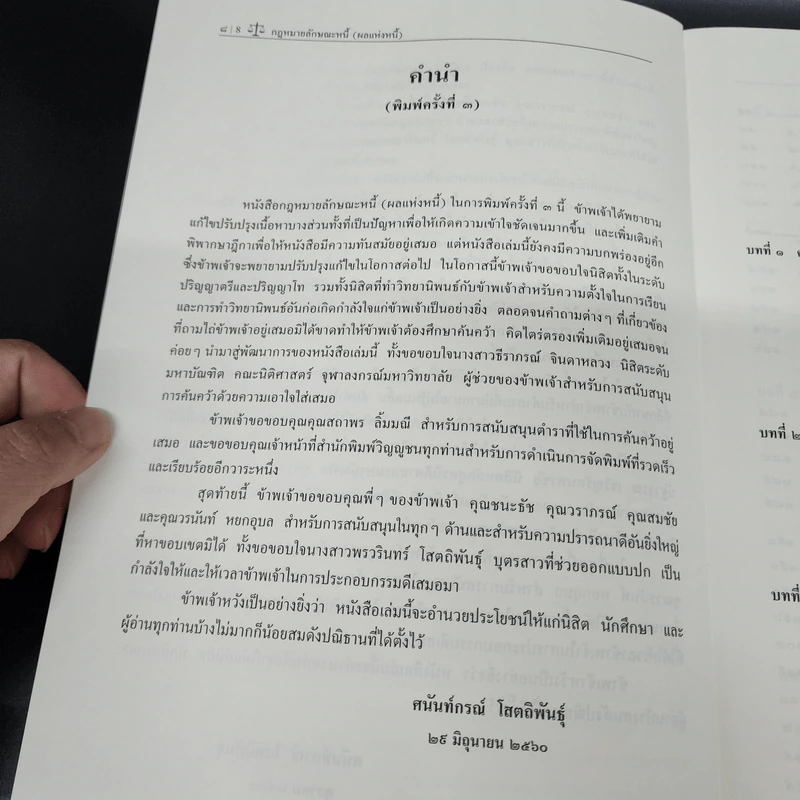 ๘ | 8 กฎหมายลักษณะหนี้ (ผลแห่งหนี้)
คำนำ
(พิมพ์ครั้งที่ ๓)
หนังสือกฎหมายลักษณะหนี้ (ผลแห่งหนี้) ในการพิมพ์ครั้งที่ ๓ นี้ ข้าพเจ้าได้พยายาม
แก้ไขปรับปรุงเนื้อหาบางส่วนทั้งที่เป็นปัญหาเพื่อให้เกิดความเข้าใจชัดเจนมากขึ้น และเพิ่มเติมคำ
พิพากษาฎีกาเพื่อให้หนังสือมีความทันสมัยอยู่เสมอ แต่หนังสือเล่มนี้ยังคงมีความบกพร่องอยู่อีก
ซึ่งข้าพเจ้าจะพยายามปรับปรุงแก้ไขในโอกาสต่อไป ในโอกาสนี้ข้าพเจ้าขอขอบใจนิสิตทั้งในระดับ
ปริญญาตรีและปริญญาโท รวมทั้งนิสิตที่ทำวิทยานิพนธ์กับข้าพเจ้าสำหรับความตั้งใจในการเรียน
และการทำวิทยานิพนธ์อันก่อเกิดกำลังใจแก่ข้าพเจ้าเป็นอย่างยิ่ง ตลอดจนคำถามต่างๆ ที่เกี่ยวข้อง
ที่ถามไถ่ข้าพเจ้าอยู่เสมอมิได้ขาดทำให้ข้าพเจ้าต้องศึกษาค้นคว้า คิดไตร่ตรองเพิ่มเติมอยู่เสมอจน
ค่อยๆ นำมาสู่พัฒนาการของหนังสือเล่มนี้ ทั้งขอขอบใจนางสาวธีราภรณ์ จินดาหลวง นิสิตระดับ
มหาบัณฑิต คณะนิติศาสตร์ จุฬาลงกรณ์มหาวิทยาลัย ผู้ช่วยของข้าพเจ้าสำหรับการสนับสนุน
การค้นคว้าด้วยความเอาใจใส่เสมอ
ข้าพเจ้าขอขอบคุณคุณสถาพร ลิ้มมณี สำหรับการสนับสนุนตำราที่ใช้ในการค้นคว้าอยู่
เสมอ และขอขอบคุณเจ้าหน้าที่สำนักพิมพ์วิญญูชนทุกท่านสำหรับการดำเนินการจัดพิมพ์ที่รวดเร็ว
และเรียบร้อยอีกวาระหนึ่ง
สุดท้ายนี้ ข้าพเจ้าขอขอบคุณพี่ๆ ของข้าพเจ้า คุณชนะธัช คุณวราภรณ์ คุณสมชัย
และคุณวรนันท์ หยกอุบล สำหรับการสนับสนุนในทุกๆ ด้านและสำหรับความปรารถนาดีอันยิ่งใหญ่
ที่หาขอบเขตมิได้ ทั้งขอขอบใจนางสาวพรวรินทร์ โสตถิพันธุ์ บุตรสาวที่ช่วยออกแบบปก เป็น
กำลังใจให้และให้เวลาข้าพเจ้าในการประกอบกรรมดีเสมอมา
ข้าพเจ้าหวังเป็นอย่างยิ่งว่า หนังสือเล่มนี้จะอำนวยประโยชน์ให้แก่นิสิต นักศึกษา และ
ผู้อ่านทุกท่านบ้างไม่มากก็น้อยสมดังปณิธานที่ได้ตั้งไว้
ศนันท์กรณ์ โสตถิพันธุ์
๒๙ มิถุนายน ๒๕๖๐
บทที่ ๑
บทที่ ๒
บทที่